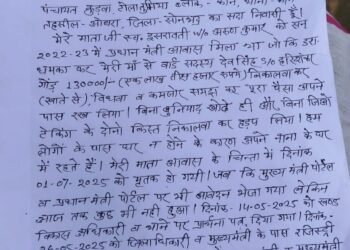 पंचायत कुड़वा टोला
तहसील - ओबरा, जिला - सोनभद्र का सदा निवासी है।
मेरे माता जी स्व. इसरावती w/o अरुण कुमार को सन्
2022-23 में प्रधान मंत्री आवास मिला था जो कि डरा
धमका कर मेरी माँ से वार्ड सदस्य देव सिंह s/o
गोंड़ 130000/- (एक लाख तीस हजार रूपये) निकालवाकर
(खाते से) विधवा व कमजोर समझ कर पूरा पैसा अपने
पास रख लिया। बिना बुनियाद खोदे ही और बिना जियो
टैकिंग के दोनों किस्त निकालवा कर हड़प लिया। हम
लोगों के पास घर न होने के कारण अपने नाना के घर
में रहते हैं। मेरी माता आवास के चिन्ता में दिनांक
01-07-2025 को मृतक हो गयी। जब कि मुख्य मंत्री पोर्टल
व प्रधानमंत्री पोर्टल पर भी आवेदन भेजा गया लेकिन
आज तक कुछ भी नहीं हुआ। दिनांक-14-05-2025 को खण्ड
विकास अधिकारी व थाने पर प्रार्थना पत्र, दिया गया। दिनांक-
-05-2025 को जिलाधिकारी व मुख्यमंत्री के पास रजिस्ट्री